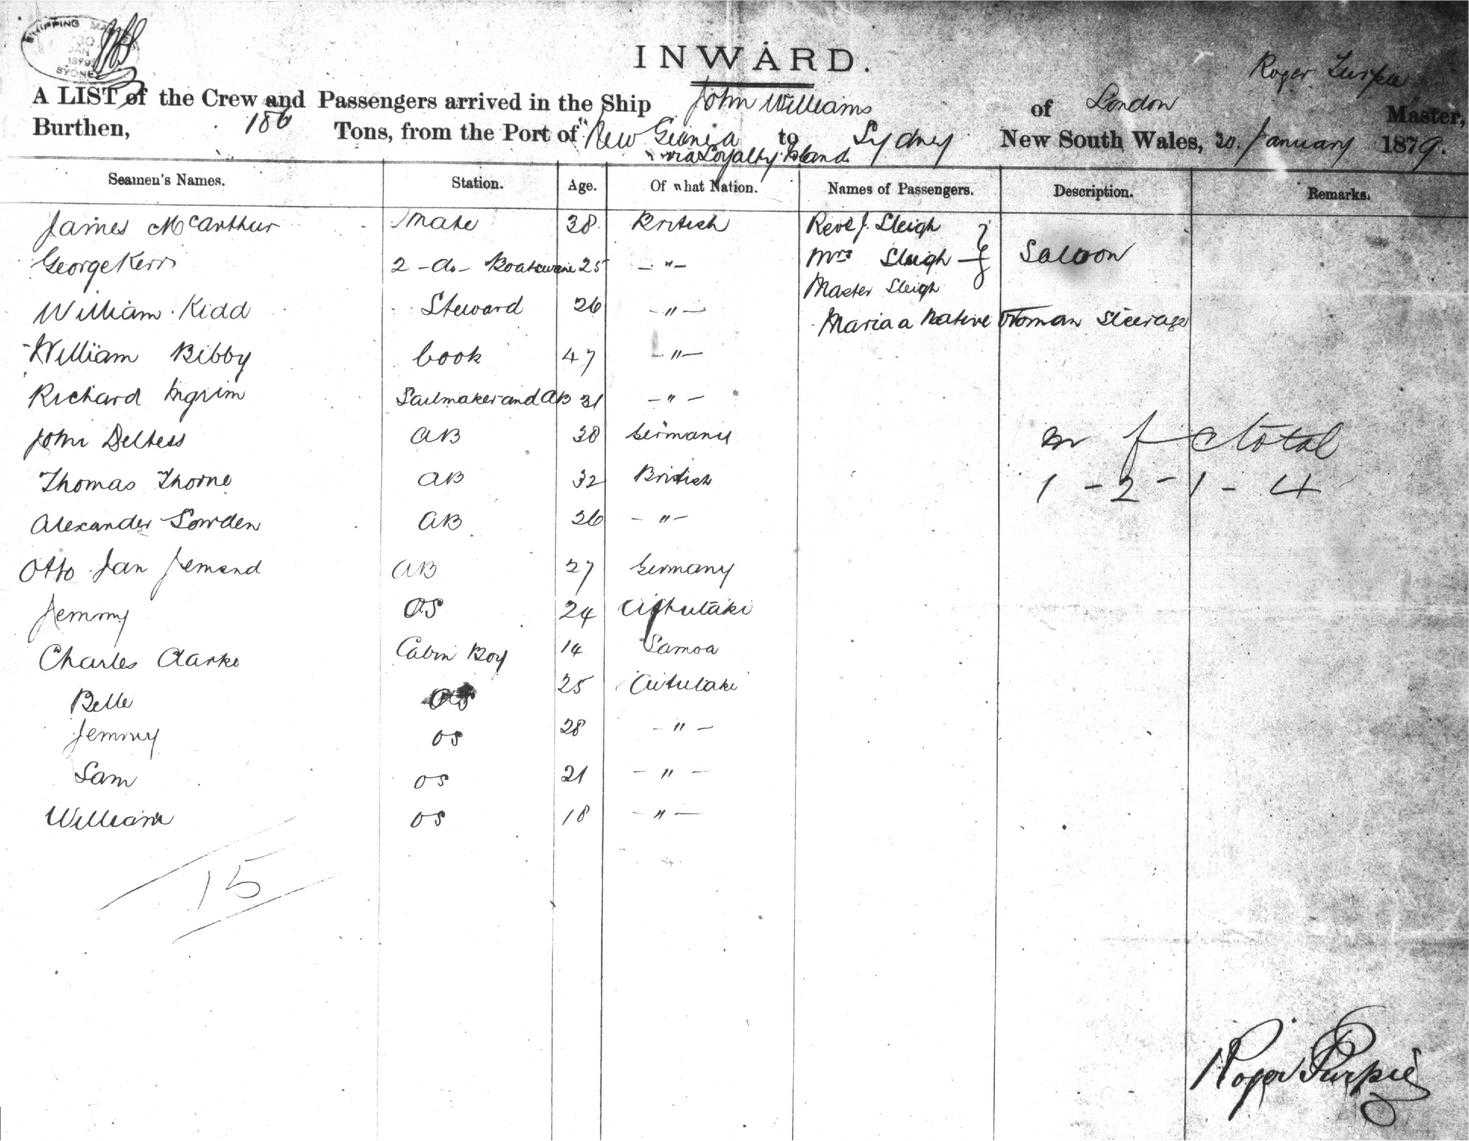 SHIPPING MA
30
JAN
1879
SYDNEY
INWARD.
Roger Turpie
A LIST of the Crew and Passengers arrived in the Ship John Williams of London Master,
Burthen, 186 Tons, from the Port of New Guinea to Sydney New South Wales, 30 January 1879.
via Loyalty Island
Seamen's Names. Station. Age. Of what Nation. Names of Passengers. Description. Remarks.
James McArthur Mate 38 British Revd J. Sleigh
George Kerr 2 - do - Boatswain 25 — " — Mrs Sleigh Saloon
Master Sleigh
William Kidd Steward 26 — " — Maria a Native Woman Steerage
William Bibby Cook 47 — " —
Richard Ingrim Sailmaker and AB 31 — " —
John Deltess AB 38 Germany m f c total
Thomas Thorne AB 32 British 1 - 2 - 1 - 4
Alexander Sowden AB 26 — " —
Otto Jan Jemend AB 27 Germany
Jemmy OS 24 Aitutaki
Charles Clarke Cabin Boy 14 Samoa
Belle OS 25 Aitutaki
Jemmy OS 28 — " —
Sam OS 21 — " —
William OS 18 — " —
15
Roger Turpie